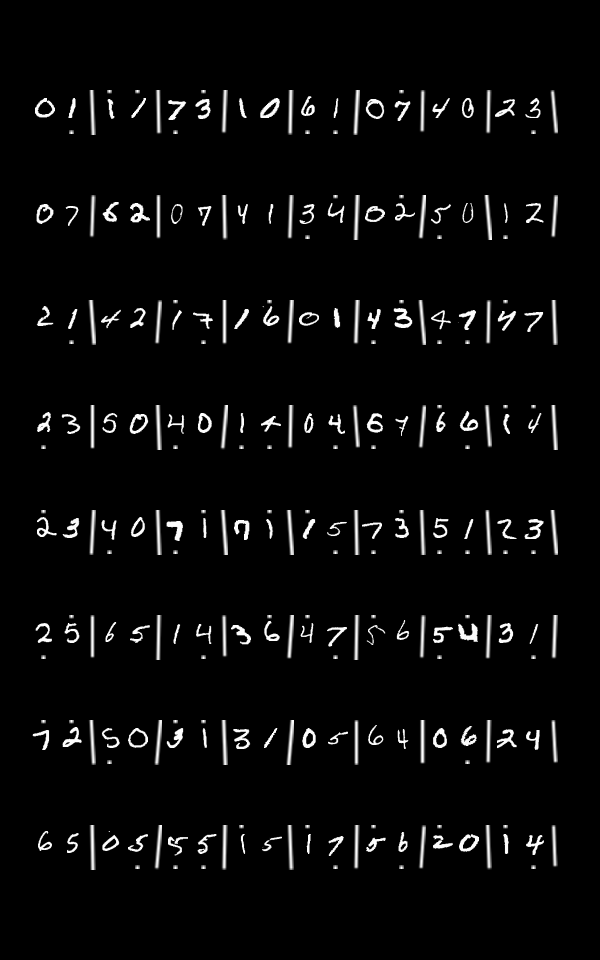 0 1̣ | 1̇ 1̇ | 7̣ 3̇ | 1 0 | 6̣ 1̣ | 0 7̇ | 4 0 | 2 3̣ |
0 7 | 6 2 | 0 7 | 4 1 | 3̣ 4̇ | 0 2̇ | 5̣ 0 | 1̣ 2 |
2 1̣ | 4 2 | 1̇ 7̣ | 1 6̇ | 0 1 | 4̣ 3̇ | 4̣ 7̣ | 4̇ 7 |
2̣ 3 | 5 0 | 4̣ 0 | 1̣ 4̣ | 0 4̣ | 6̣ 7 | 6̇ 6̣ | 1̇ 4̇ |
2̇ 3 | 4̣ 0 | 7̣ 1̇ | 7 1̇ | 1̇ 5̣ | 7̣ 3̇ | 5 1̣ | 2̣ 3̣ |
2̣ 5̇ | 6 5 | 1 4̣ | 3 6̇ | 4̇ 7̣ | 5̇ 6 | 5̣ 4̇ | 3 1̣ |
7̇ 2̇ | 5̣ 0 | 3̇ 1̇ | 3 1 | 0 5 | 6 4 | 0 6̣ | 2 4 |
6 5 | 0 5̣ | 5̣ 5̣ | 1̇ 5 | 1 7̣ | 5̇ 6̣ | 2̇ 0 | 1̇ 4̣ |